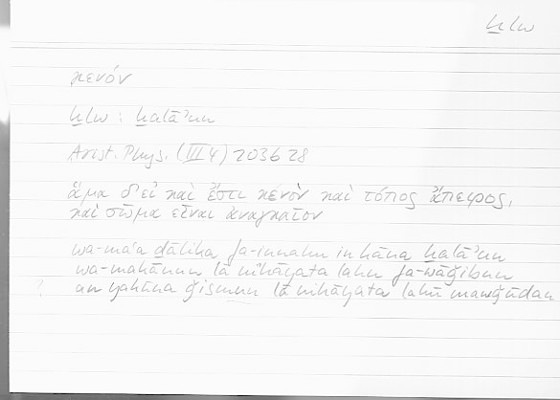 ḫlw
κενόν
ḫlw : ḫalāʾun
Arist. Phys. (III 4) 203b28
ἅμα δ' εἰ καὶ ἔστι κενὸν καὶ τόπος ἄπειρος,
καὶ σῶμα εἶναι ἀναγκαῖον
wa-maʿa ḏālika fa-innahu in kāna ḫalāʾun
wa-makānun lā nihāyata lahu fa-wāǧibun
an yakūna ǧismun lā nihāyata lahū mawǧūdan